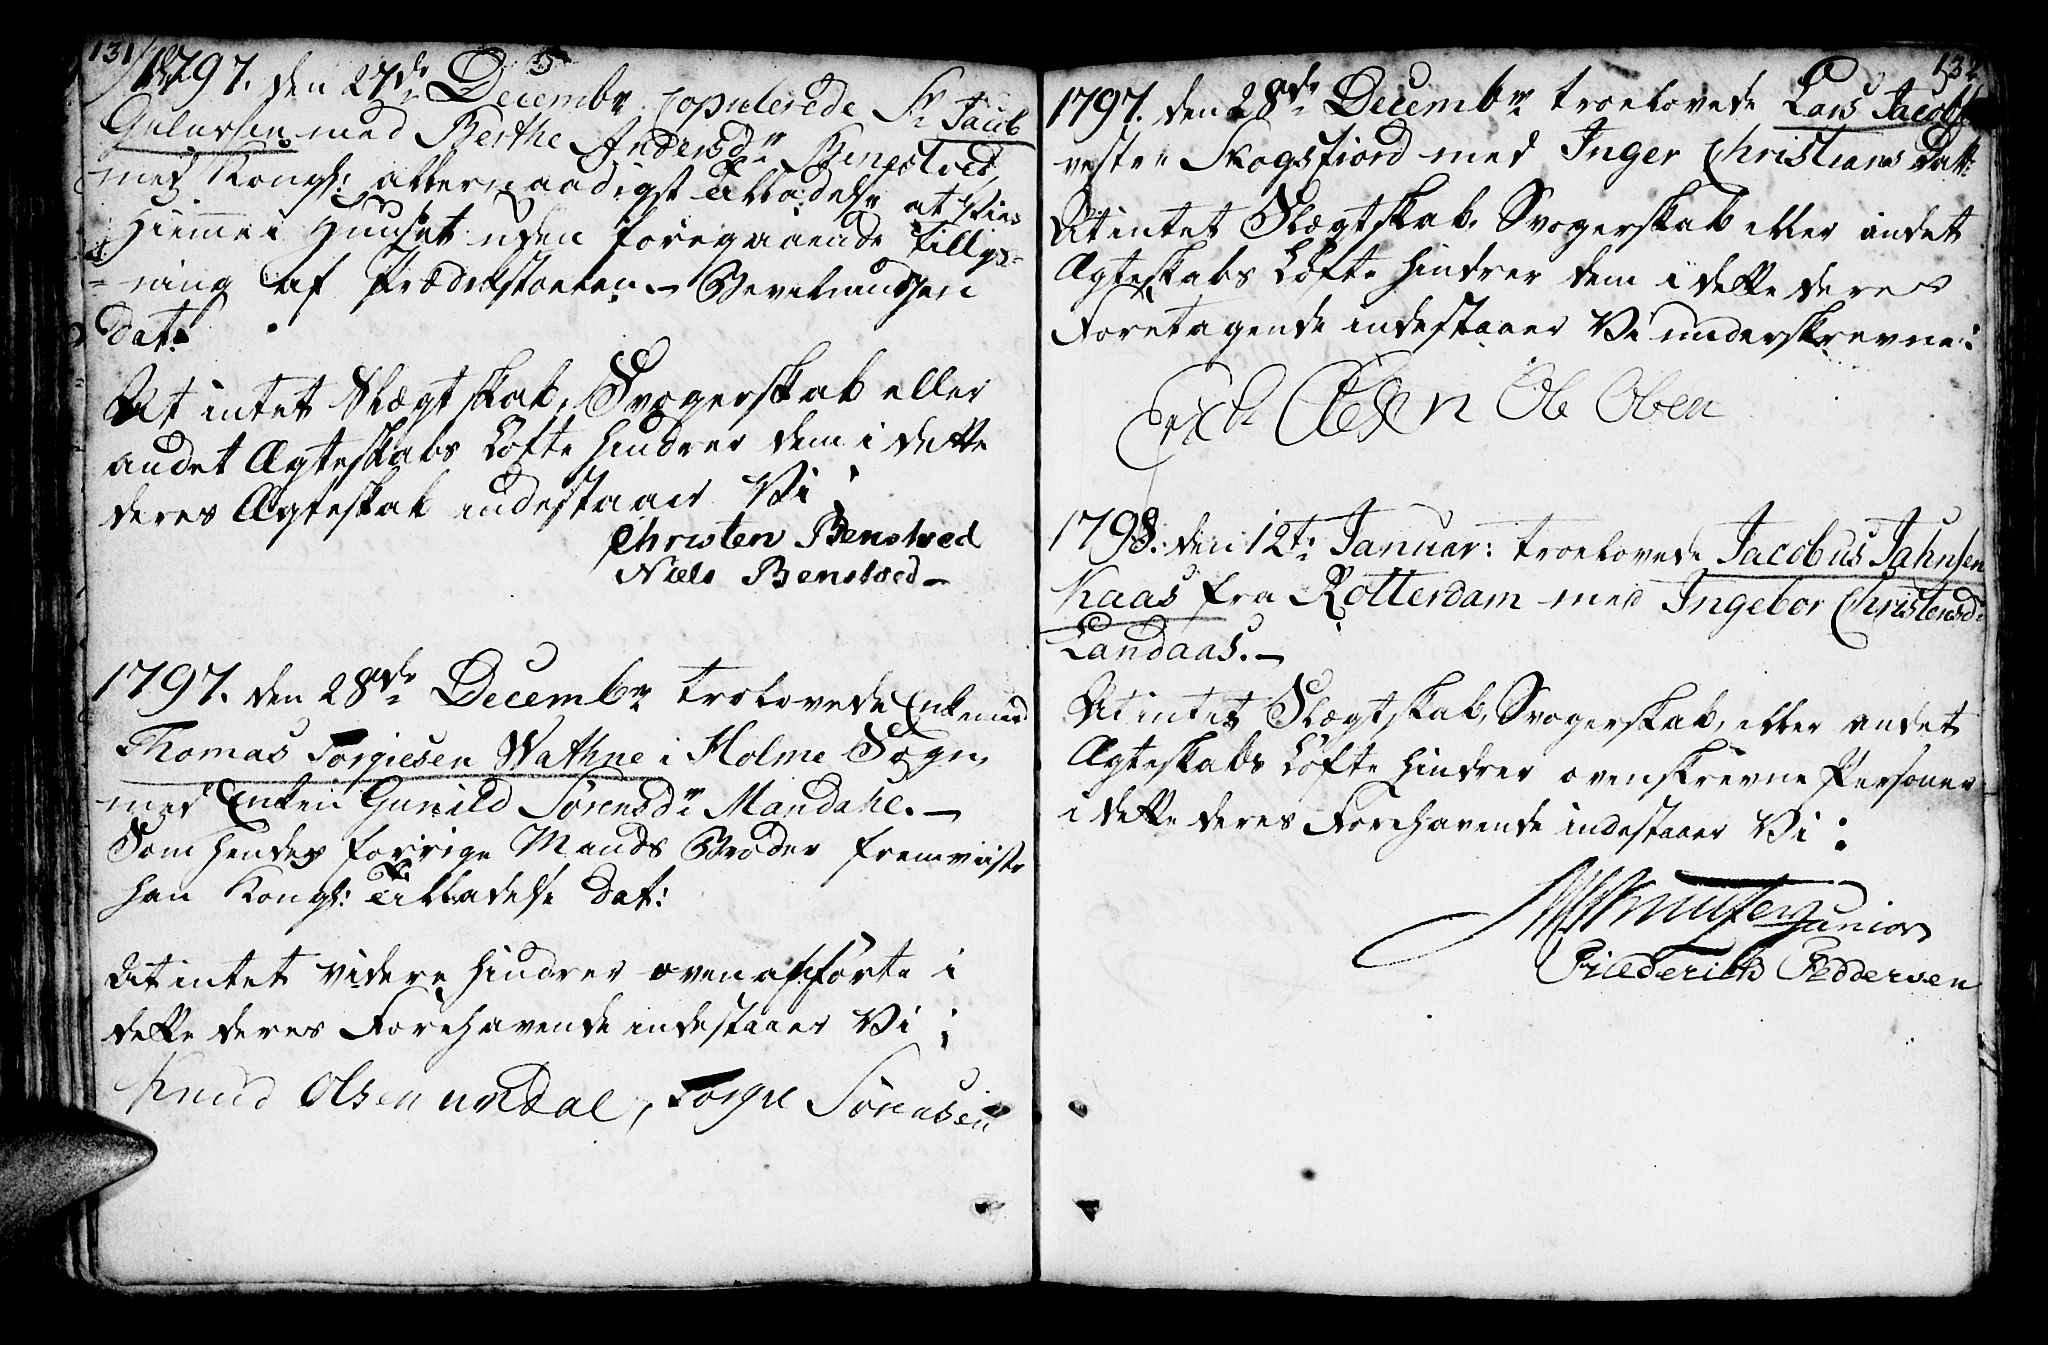 131
1797. den 27de Decembr Copulerede Sr Jacob
Gulufsen med Berthe Andersdr Benestvet,
med Kongl: allernaadigst Tilladelse at Vies
hiemme i Huuset uden foregaaende Tillys=
=ning af Prædikestoelen. Bevilningen
dat:
At intet Slægtskab, Svogerskab eller
andet Ægteskabs Løfte hindrer dem i dette
deres Ægteskab indestaaer Vi:
Christen Benstved
Niels Benstved
1797. den 28de Decembr trolovede Enkemd
Thomas Torgiesen Wathne i Holme Sogn,
med Enken Gunild Sørensdr Mandahl.
Som hendes forrige Mands Broder fremviiste
han Kongl: Tilladelse dat:
At intet videre hindrer ovenanførte i
dette deres Forehavende indestaaer Vi:
Knud Olsen undal, Torgie Sörensen
132
1797. den 28de Decembr troelovede Lars Jacobs
vestre Skogsfiord med Inger Christians Datt:
At intet Slægtskab, Svogerskab eller andet
Ægteskabs Løfte hindrer dem i dette deres
Foretagende indestaaer Vi underskrevne:
Erich Olesen Ole Olsen
1798. den 12te Januar: troelovede Jacobus Jahnsen
Kaas fra Rotterdam med Ingebor Christensd:
Landaas.
At intet Slægtskab, Svogerskab, eller andet
Ægteskabs Løfte hindrer ovenskrevne Personer
i dette deres Forehavende indestaaer Vi:
Knutzen junior
Friederich Peddersen